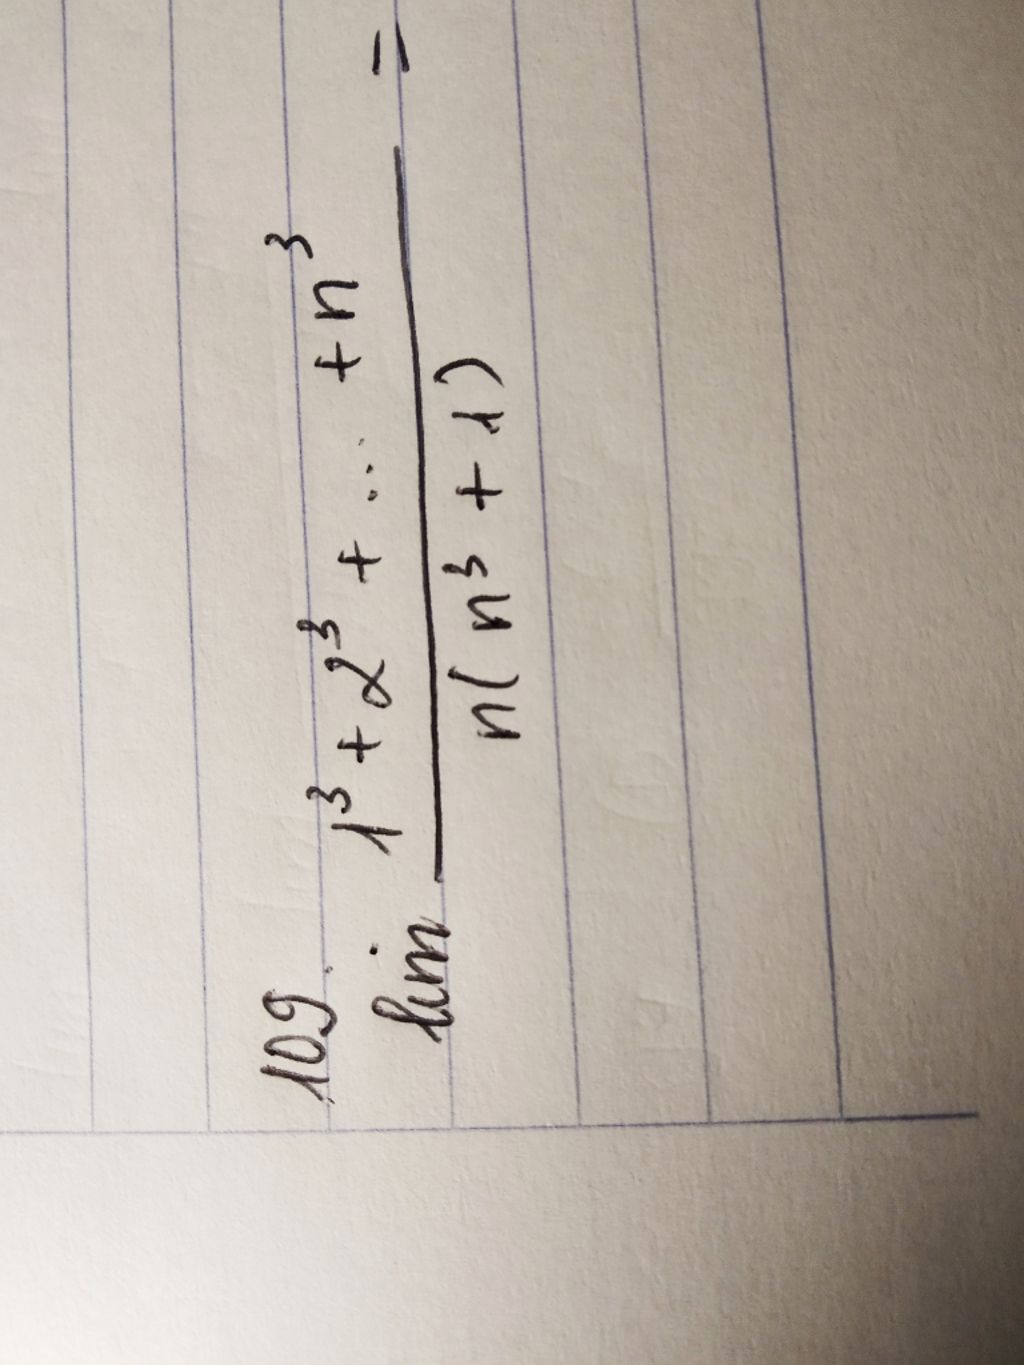 109.
lim (1³ + 2³ + ... + n³) / (n(n³ + 1)) =